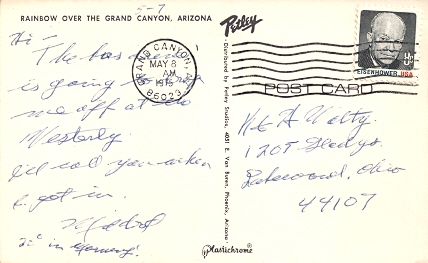 5-7
RAINBOW OVER THE GRAND CANYON, ARIZONA
Hi -
The bus
is going to
me off at the
Westerly.
I'll call you when
I get in.
Mildred
22° in morning!
GRAND CANYON, AZ
MAY 8
AM
86023
Petley
Distributed by Petley Studios, 4051 E. Van Buren, Phoenix, Arizona
Plastichrome
EISENHOWER USA
POST CARD
1205 Gladys
Lakewood, Ohio
44107